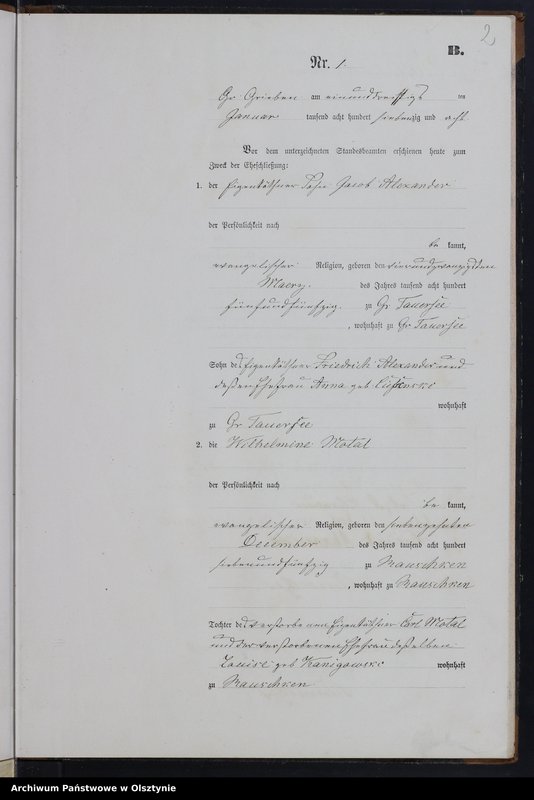 2
B.
Nr. 1.
Gr Grieben am einunddreißigs ten
Januar tausend acht hundert siebenzig und acht
Vor dem unterzeichneten Standesbeamten erschienen heute zum
Zweck der Eheschließung:
1. der Eigenkäthner Sohn Jacob Alexander
der Persönlichkeit nach
be kannt,
evangelischer Religion, geboren den vierundzwanzigsten
Maerz. des Jahres tausend acht hundert
fünfundfünfzig. zu Gr Tauersee
, wohnhaft zu Gr Tauersee
Sohn des Eigenkäthner Friedrich Alexander und
deßen Ehefrau Anna geb
wohnhaft
zu Gr Tauersee
2. die Wilhelmine Motal
der Persönlichkeit nach
be kannt,
evangelischer Religion, geboren den siebenzehnten
December des Jahres tausend acht hundert
siebenundfünfzig zu Rauschken
, wohnhaft zu Rauschken
Tochter des verstorbenen Eigenkäthner Carl Motal
und der verstorbenen Ehefrau deßelben
Louise geb Kanigowski wohnhaft
zu Rauschken
Archiwum Państwowe w Olsztynie